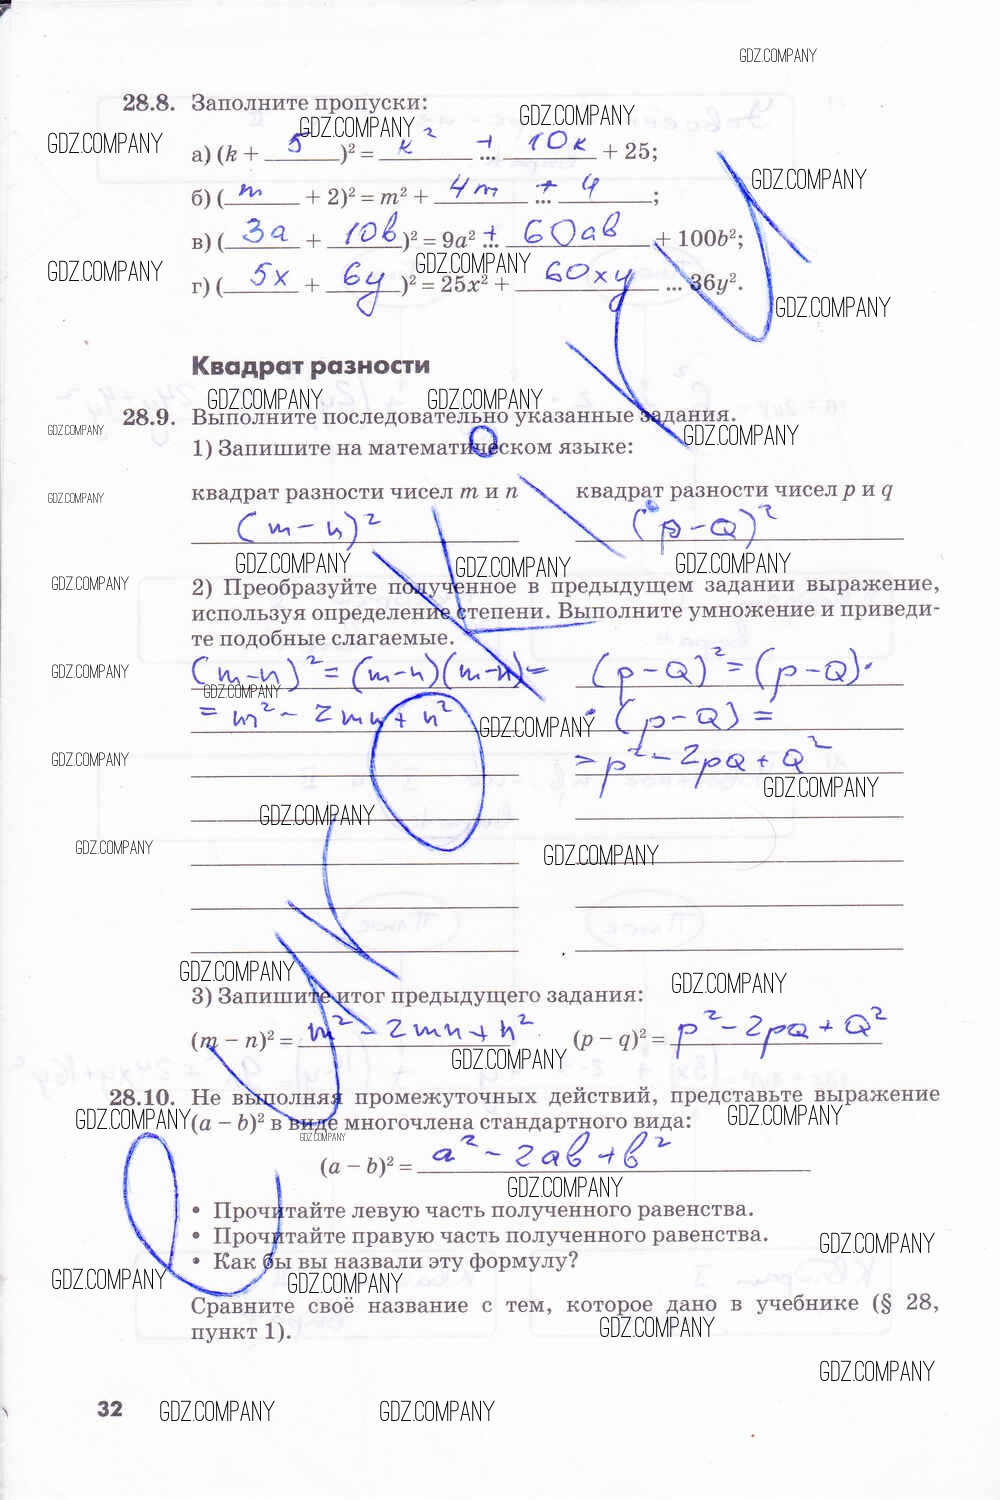 GDZ.COMPANY
28.8. Заполните пропуски:
GDZ.COMPANY GDZ.COMPANY GDZ.COMPANY
а) (k + 5)² = k² + ... 10k + 25;
GDZ.COMPANY
б) (m + 2)² = m² + 4m + ... 4;
в) (3a + 10b)² = 9a² + ... 60ab + 100b²;
GDZ.COMPANY GDZ.COMPANY
г) (5x + 6y)² = 25x² + 60xy ... 36y².
GDZ.COMPANY
Квадрат разности
GDZ.COMPANY GDZ.COMPANY
28.9. Выполните последовательно указанные задания.
GDZ.COMPANY GDZ.COMPANY
1) Запишите на математическом языке:
квадрат разности чисел m и n квадрат разности чисел p и q
GDZ.COMPANY
(m – n)² (p – Q)²
GDZ.COMPANY GDZ.COMPANY GDZ.COMPANY
GDZ.COMPANY
2) Преобразуйте полученное в предыдущем задании выражение,
используя определение степени. Выполните умножение и приведи-
те подобные слагаемые.
GDZ.COMPANY
(m – n)² = (m – n)(m – n) = (p – Q)² = (p – Q)·
GDZ.COMPANY
= m² – 2mn + n² · (p – Q) =
GDZ.COMPANY
GDZ.COMPANY
= p² – 2pQ + Q²
GDZ.COMPANY
GDZ.COMPANY
GDZ.COMPANY GDZ.COMPANY
GDZ.COMPANY GDZ.COMPANY
3) Запишите итог предыдущего задания:
(m – n)² = m² – 2mn + n² (p – q)² = p² – 2pQ + Q²
GDZ.COMPANY
28.10. Не выполняя промежуточных действий, представьте выражение
GDZ.COMPANY GDZ.COMPANY
(a – b)² в виде многочлена стандартного вида:
GDZ.COMPANY
(a – b)² = a² – 2ab + b²
GDZ.COMPANY
• Прочитайте левую часть полученного равенства.
• Прочитайте правую часть полученного равенства.
GDZ.COMPANY
• Как бы вы назвали эту формулу?
GDZ.COMPANY GDZ.COMPANY
Сравните своё название с тем, которое дано в учебнике (§ 28,
GDZ.COMPANY
пункт 1).
GDZ.COMPANY
32 GDZ.COMPANY GDZ.COMPANY